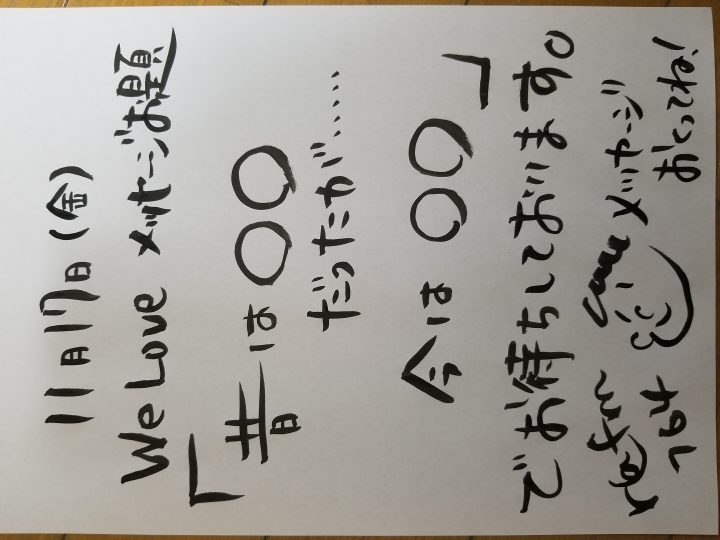 11月17日(金)
We Love メッセージお題
「昔は〇〇
だったが……
今は〇〇」
でお待ちしております。
メッセージ
おくってね!